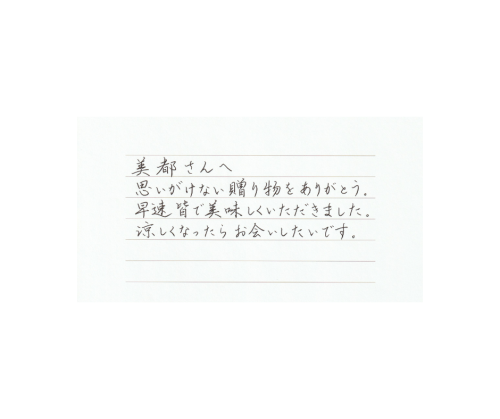 美都さんへ
思いがけない贈り物をありがとう。
早速皆で美味しくいただきました。
涼しくなったらお会いしたいです。